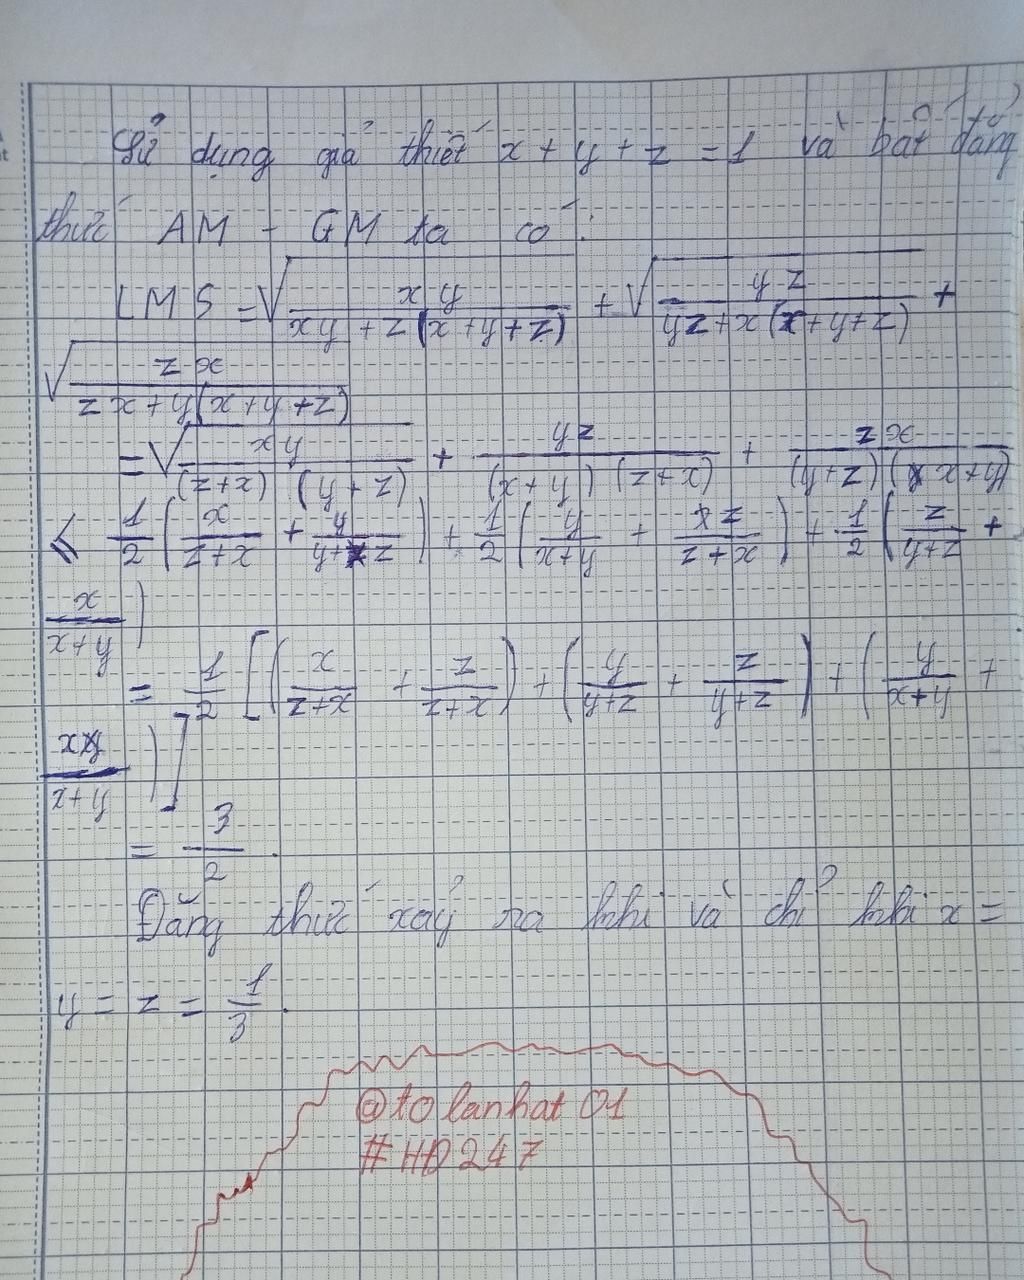 Sử dụng giả thiết x + y + z = 1 và bất đẳng
thức AM - GM ta có :
LMS = √(xy / (xy + z(x+y+z))) + √(yz / (yz + x(x+y+z))) +
√(zx / (zx + y(x+y+z)))
= √(xy / ((z+x) (y+z))) + yz / ((x+y) (z+x)) + zx / ((y+z) (x+y))
≤ 1/2 (x/(z+x) + y/(y+z)) + 1/2 (y/(x+y) + z/(z+x)) + 1/2 (z/(y+z) +
x/(x+y))
= 1/2 [(x/(z+x) + z/(z+x)) + (y/(y+z) + z/(y+z)) + (y/(x+y) +
x/(x+y))]
= 3/2 .
Đẳng thức xảy ra khi và chỉ khi x =
y = z = 1/3 .
@tolanhat01
#HD247